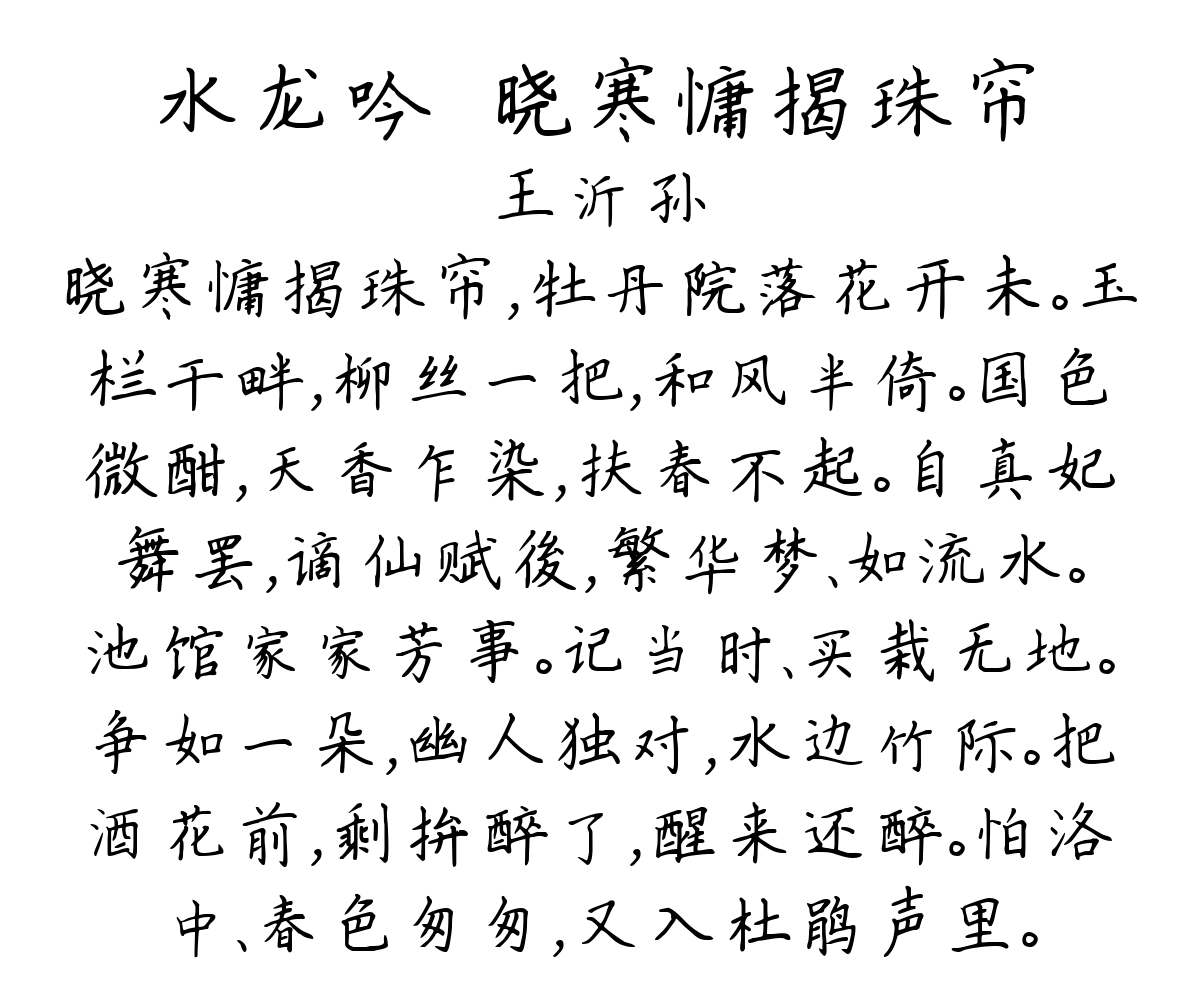 水龙吟 晓寒慵揭珠帘
王沂孙
晓寒慵揭珠帘,牡丹院落花开未。玉
栏干畔,柳丝一把,和风半倚。国色
微酣,天香乍染,扶春不起。自真妃
舞罢,谪仙赋後,繁华梦、如流水。
池馆家家芳事。记当时、买栽无地。
争如一朵,幽人独对,水边竹际。把
酒花前,剩拚醉了,醒来还醉。怕洛
中、春色匆匆,又入杜鹃声里。